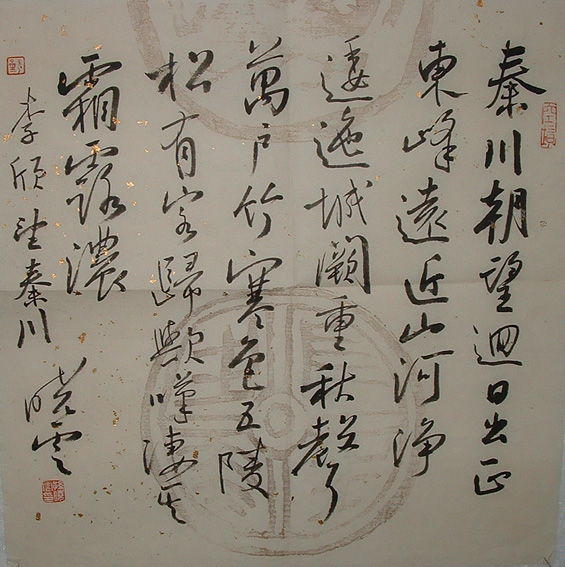 秦川朝望迥日出正
東峰遠近山河净
逶迤城闕重秋聲
萬戶竹寒色五陵
松有客歸歟嘆凄其
霜露濃
李頎望秦川
晓云